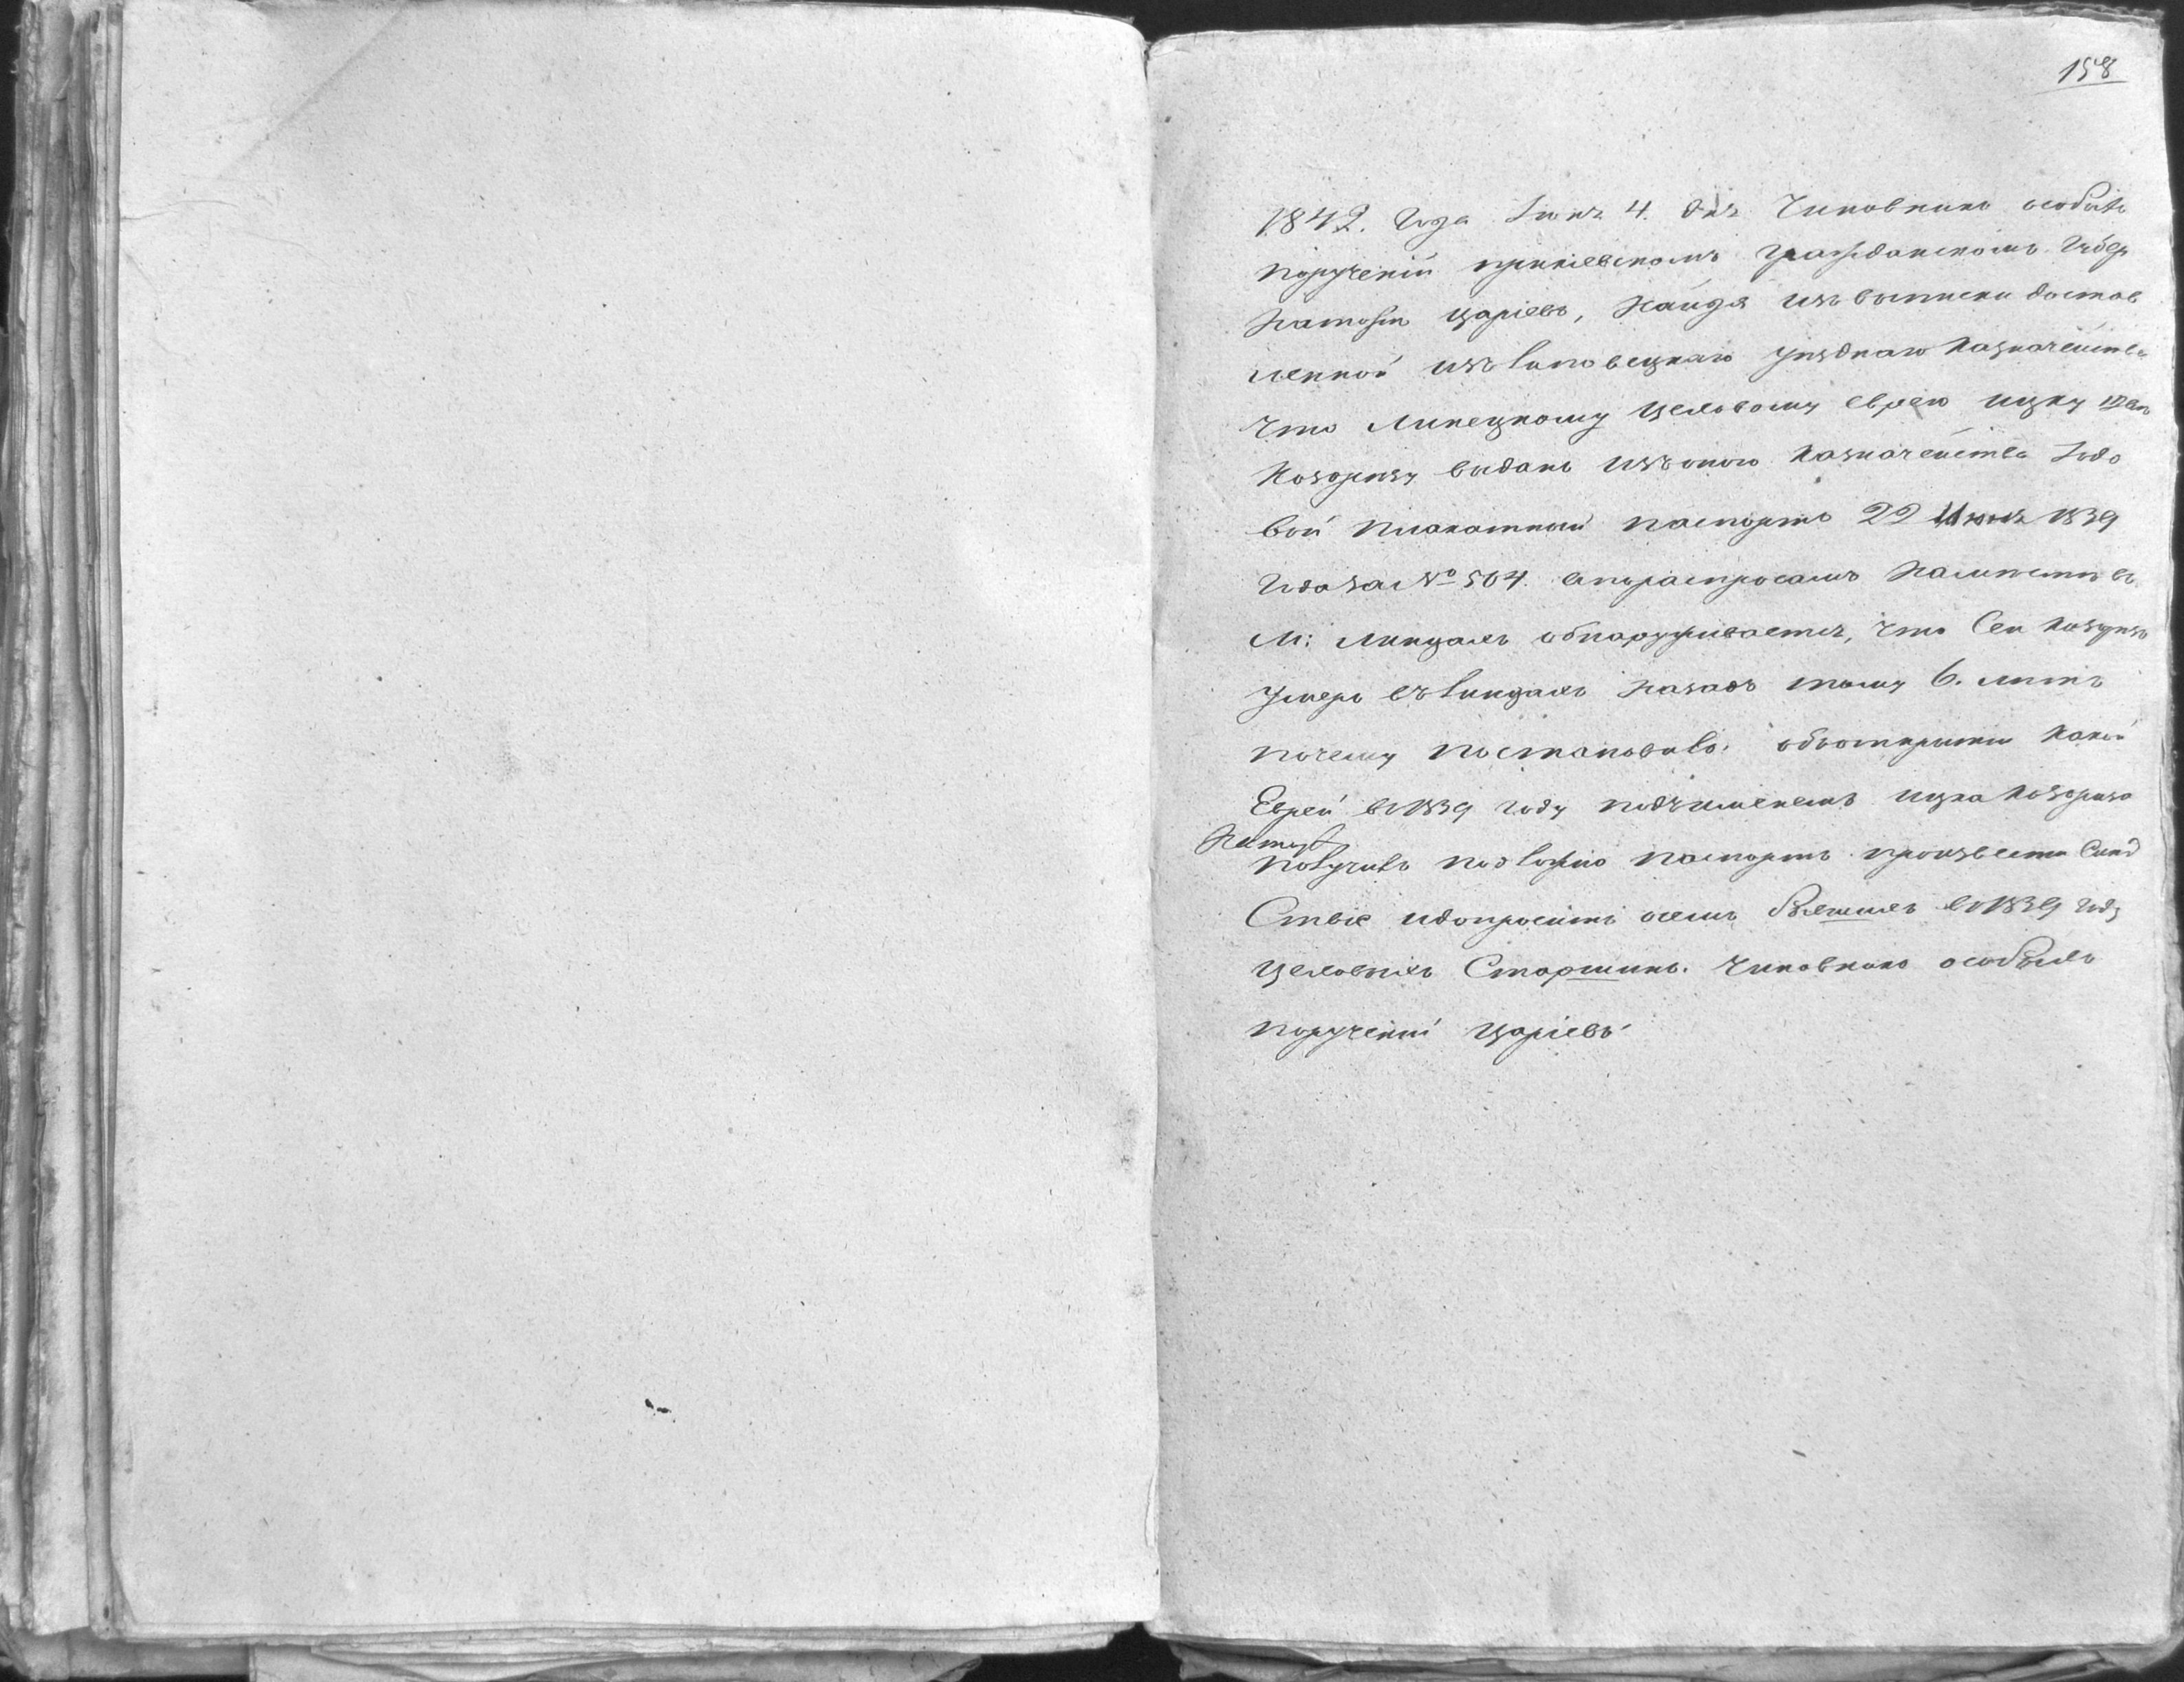 158
1842. Года Iюня 4. дня Чиновникъ особыхъ
порученiй прикiевскомъ гражданскомъ Губер
наторѣ Царiевъ, найдя изъ выписки достав
ленной изъ Липовецкаго уѣзднаго Казначейства
Что Линецкому Цеховому еврею Ицку
Козорѣзу выданъ изъ оного Казначейства Годо
вой плакатный паспортъ 22 Июня 1839
Года за № 504. а порапросамъ на мѣстѣ въ
М: Линцахъ обнаруживается, что Сей Козорѣзъ
Умеръ въ Линцахъ назадъ тому 6. лѣтъ
почему постановилъ: объоткрытiи какой
Еврей въ 1839 году подъименемъ Ицка Козорѣза
получилъ подложно паспортъ произвести Слѣд
Ствiе идопросить осемъ бывшихъ въ 1839 году
Цеховыхъ Старшинъ. Чиновникъ особыхъ
порученiй Царiевъ